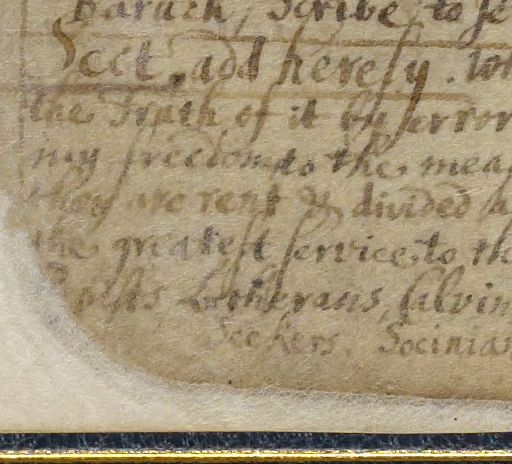 Baruch, Scribe to Je
Sect. add heresy. wh
the Truth of it by error
my freedom to the mea
they are rent & divided a
the greatest service to the
Lutherans, Calvin
Seekers, Socinian